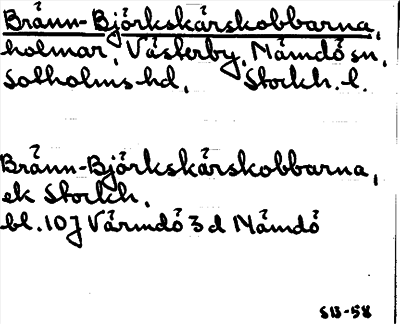 Bränn-Björkskärskobbarna,
holmar, Västerby, Nämdö sn,
Sotholms hd, Stockh. l.
Bränn-Björkskärskobbarna,
ek Stockh.
bl. 10J Värmdö 3d Nämdö
SB-58